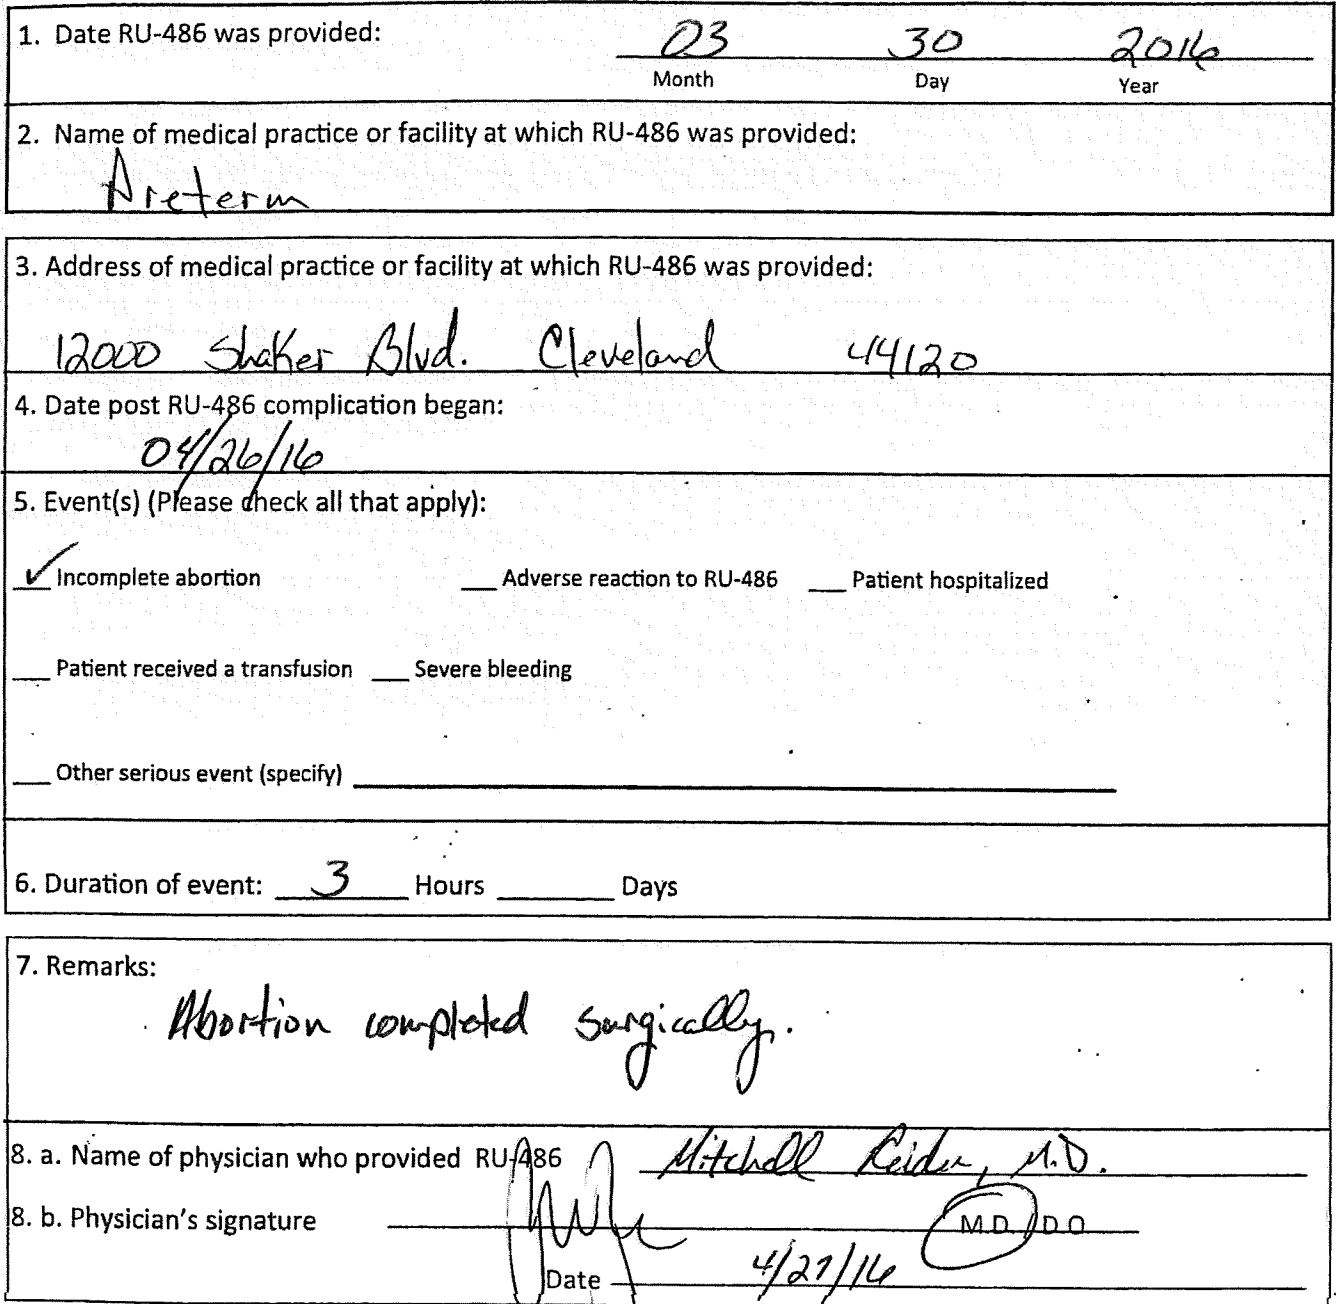 1. Date RU-486 was provided: 03 30 2016
Month Day Year
2. Name of medical practice or facility at which RU-486 was provided:
Preterm
3. Address of medical practice or facility at which RU-486 was provided:
12000 Shaker Blvd. Cleveland 44120
4. Date post RU-486 complication began:
04/26/16
5. Event(s) (Please check all that apply):
✓ Incomplete abortion __ Adverse reaction to RU-486 __ Patient hospitalized
__ Patient received a transfusion __ Severe bleeding
__ Other serious event (specify)
6. Duration of event: 3 Hours ____ Days
7. Remarks:
Abortion completed surgically.
8. a. Name of physician who provided RU-486 Mitchell Reider, M.D.
8. b. Physician's signature M.D./D.O
Date 4/27/16